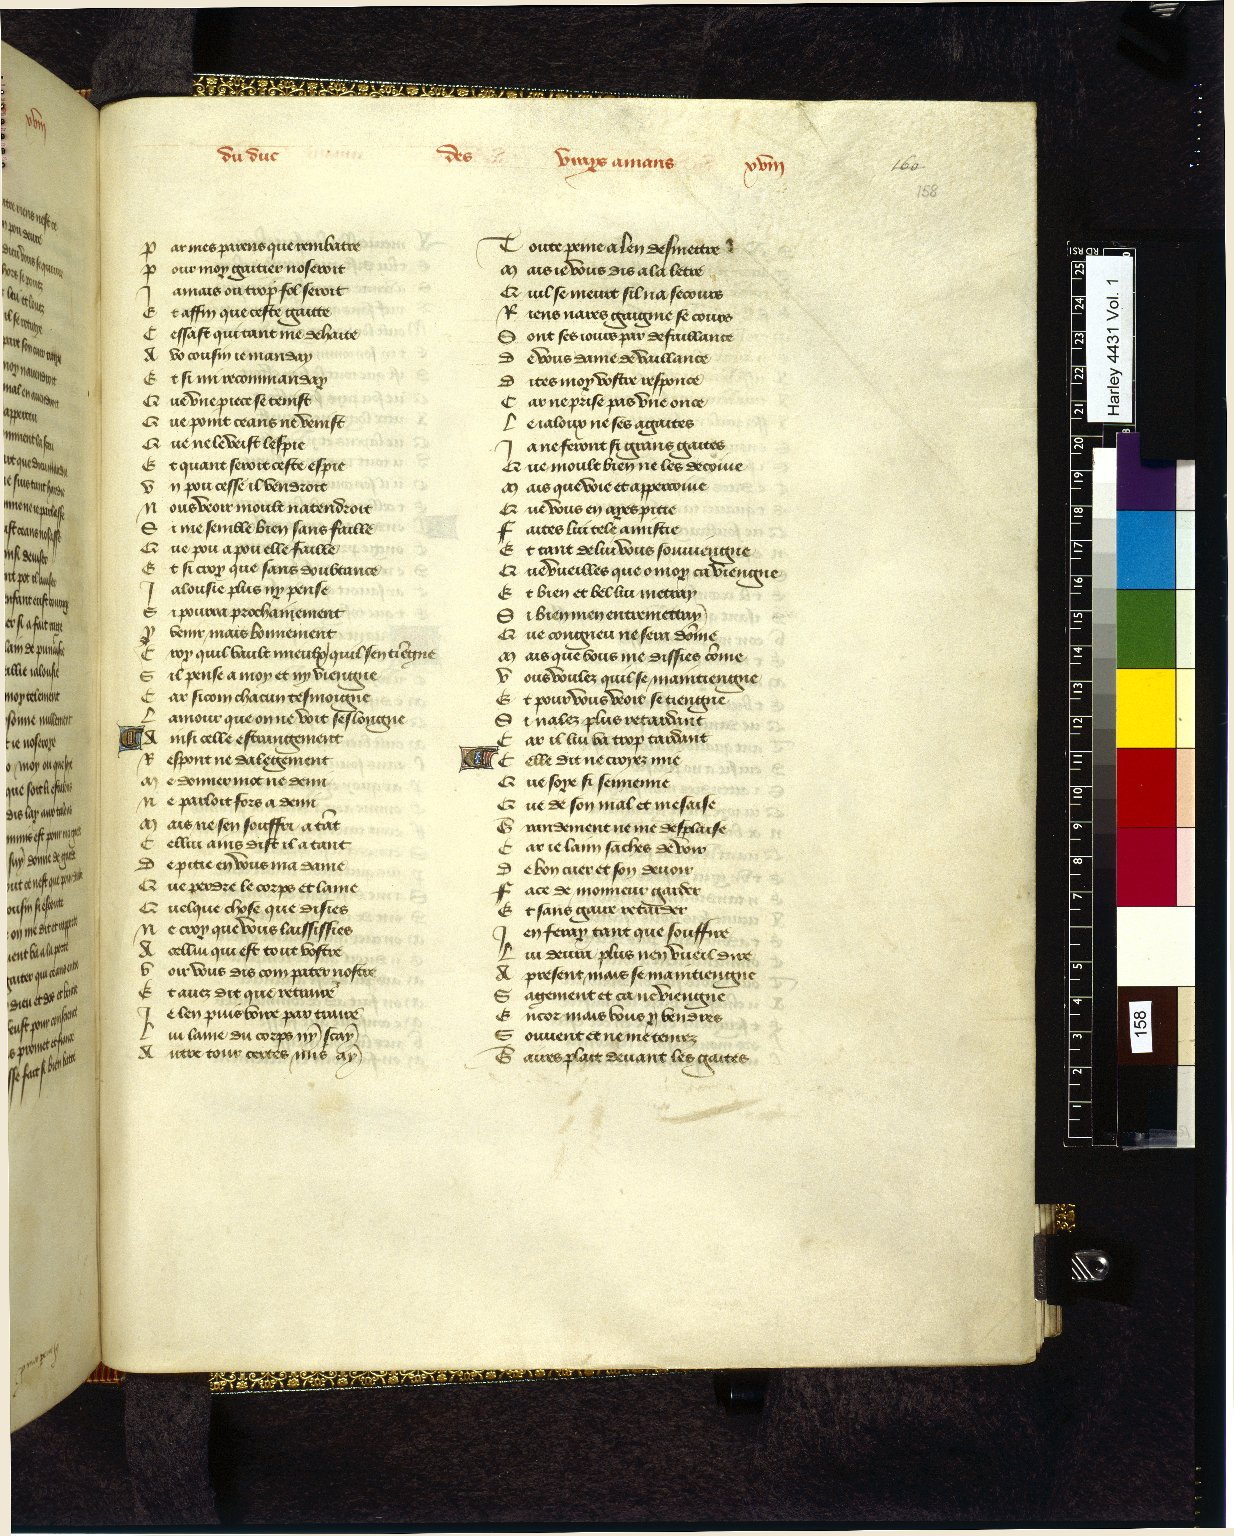 du duc des vrays amans xviii
160
158
P ar mes parens que rembatre
P our moy gaitier noseroit
J amais ou trop fol seroit
E t affin que ceste gaitte
C essast qui tant me dehaite
A vo cousin ie manday
E t si mi recommanday
Q ue vne piece se tenist
Q ue point ceans ne venist
Q ue ne le veist lespie
E t quant seroit ceste espie
V n pou cesse il vendroit
N ous veoir moult natendroit
S i me semble bien sans faille
Q ue pou a pou elle faille
E t si croy que sans doubtance
J alousie plus ny pense
S i pourra prochainement
Y venir mais bonnement
C roy quil vault mieulx quil sen tiengne
S il pense a moy et ny viengne
C ar sicom chacun tesmoigne
L amour que on ne voit seslongne
A insi celle estrangement
R espont ne dalegement
M e donner mot ne deni
N e parloit fors a demi
M ais ne sen souffri a tāt
C ellui ains dist il a tant
D e pitie en vous ma dame
Q ue perdre le corps et lame
Q uelque chose que disies
N e croy que vous laississies
A cellui qui est tout vostre
V oir vous dis com pater nostre
E t auez dit que retraire
J e len puis voire par traire
L ui lame du corps ny scay
A utre tour certes mis ay
T oute peine a len desmettre
M ais ie vous dis a la lettre
Q uil se meurt sil na secours
R iens nares gaigne se cours
S ont ses iours par defaillance
D e vous dame de vaillance
D ites moy vostre responce
C ar ne prise pas vne once
L e ialoux ne ses agaites
J a ne seront si grans gaites
Q ue moult bien ne les decoiue
M ais que voie et appercoiue
Q ue vous en ayes pitie
F aites lui tele amistie
E t tant de lui vous souuiengne
Q ue vueilles que o moy ca viengne
E t bien et bel lui mettray
S i bien men entremettray
Q ue congneu ne sera dōme
M ais que vous me dissies cōme
V ous voulez quil se maintiengne
E t pour vous veoir se tiengne
S i nalez plus retardant
C ar il lui va trop tardant
C elle dit ne croyez mie
Q ue soye si sennemie
Q ue de son mal et mesaise
G randement ne me desplaise
C ar ie laim saches de voir
D e bon cuer et son deuoir
F ace de monneur garder
E t sans gaire retarder
J en feray tant que souffire
L ui deura plus nen vueil dire
A present mais se maintiengne
S agement et ca ne viengne
E ncor mais vous y vendres
S ouuent et ne me tenrez
G aires plait deuant les gaites
Harley 4431 Vol. 1
158
25
24
23
22
21
20
19
18
17
16
15
14
13
12
11
10
9
8
7
5
4
3
2
1